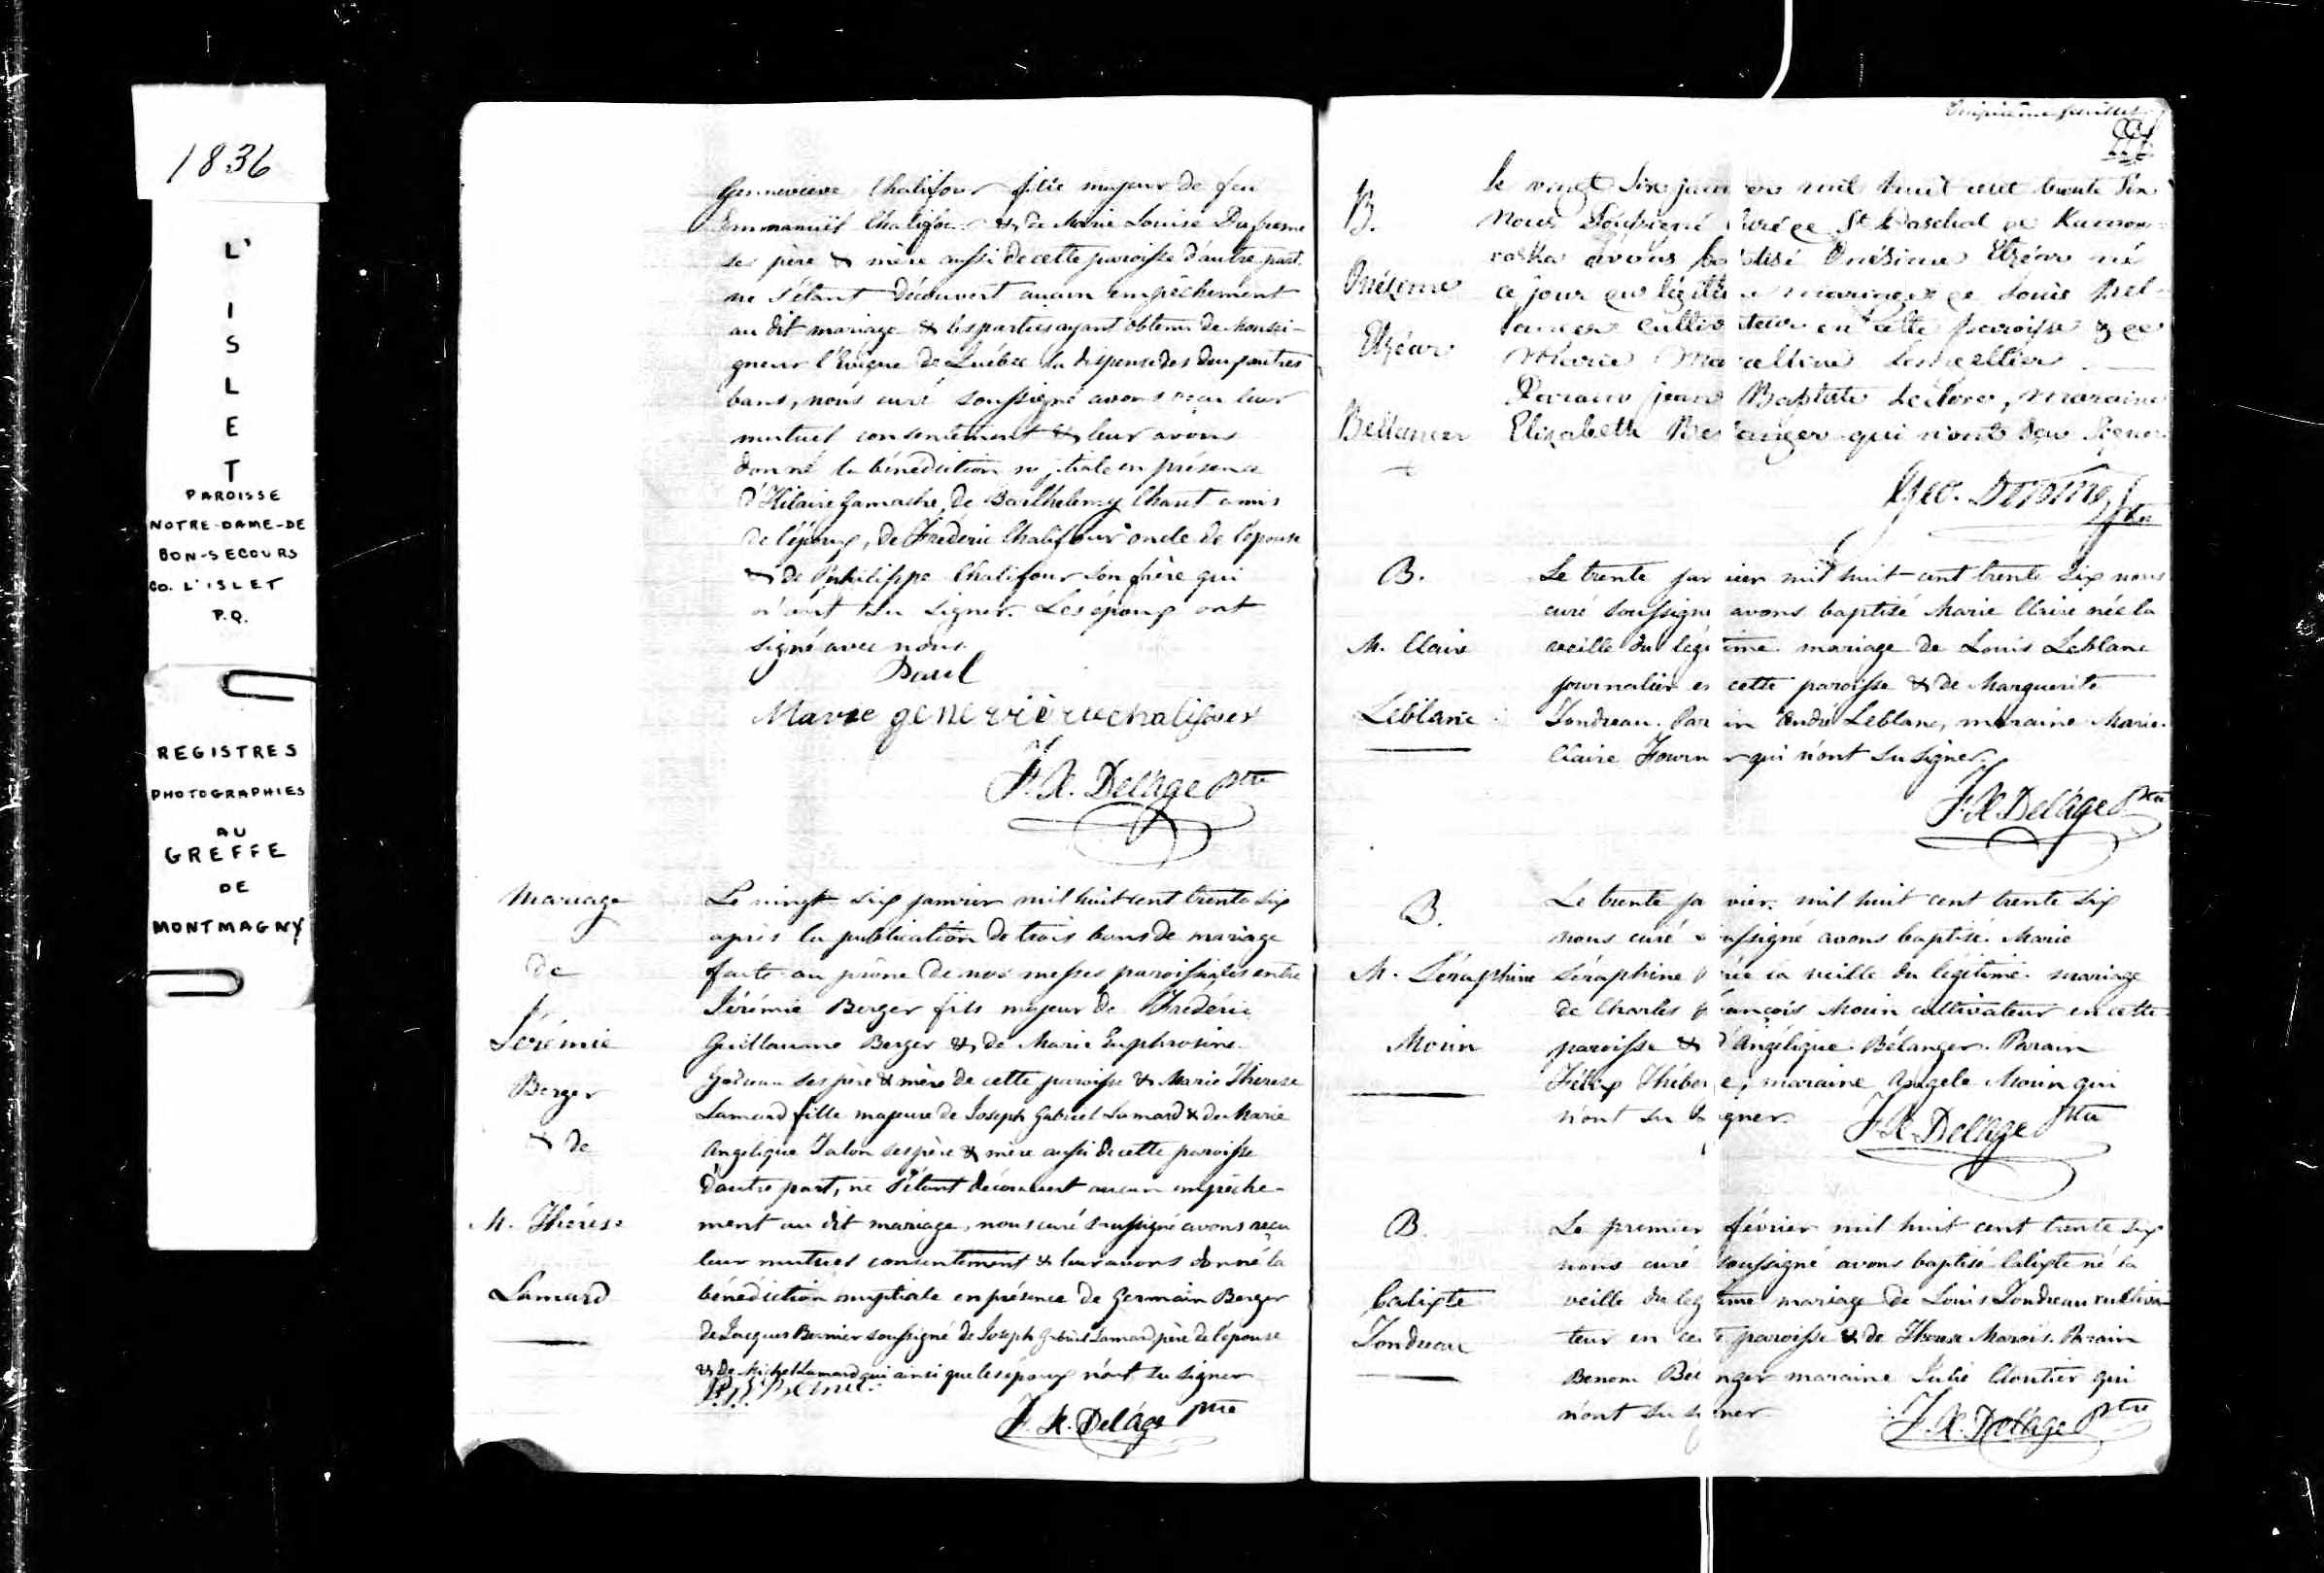 1836
L'
I
S
L
E
T
PAROISSE
NOTRE-DAME-DE
BON-SECOURS
CO. L'ISLET
P.Q.
REGISTRES
PHOTOGRAPHIES
AU
GREFFE
DE
MONTMAGNY
Genneviève Chalifour fille majeur de feu
Emmanuël Chalifour & de Marie Louise Dufresne
ses père & mère aussi de cette paroisse d'autre part
ne s'étant découvert aucun empêchement
au dit mariage & les parties ayant obtenu de Monsei-
gneur l'Evêque de Québec la dispense des deux autres
bans, nous curé soussigné avons reçu leur
mutuel consentement & leur avons
donné la bénédiction nuptiale en présence
d'Hilaire Gamache, de Barthelemy Chant amis
de l'époux, de Fréderic Chalifour oncle de l'épouse
& de Philippe Chalifour son frère qui
n'ont su signer. Les époux ont
signé avec nous.
Paul
Marie genevièruechalifour
F. X. Delâge Ptre
Mariage
de
Jérémie
Berger
& de
M. Thérèse
Lamard
Le vingt six janvier mil huit cent trente six
après la publication de trois bans de mariage
faite au prône de nos messes paroissiales entre
Jérémie Berger fils majeur de Fréderic
Guillaume Berger & de Marie Euphrosine
Godreau ses père & mère de cette paroisse & Marie Therese
Lamard fille majeure de Joseph Gabriel Lamard & de Marie
Angelique Talon ses père & mère aussi de cette paroisse
d'autre part, ne s'étant découvert aucun empêche-
ment au dit mariage, nous curé soussigné avons reçu
leur mutuel consentement & leur avons donné la
bénédiction nuptiale en présence de Germain Berger
de Jacques Bernier soussigné de Joseph Gabriel Lamard père de l'épouse
& de Michel Lamard qui ainsi que les époux n'ont su signer
F. X. Delâge Ptre
B.
Onézime
Elzéar
Bellanger
le vingt six janvier mil huit cent trente six
nous Soussigné Curé de St Paschal de Kamou-
raska avons baptisé Onésime Elzéar né
ce jour du légitime mariage de Louis Bel-
langer cultivateur en cette paroisse & de
Marie Marcelline Lemellier
Parain Jean Baptiste Leclerc, maraine
Elizabeth Bellanger qui n'ont seu signer
Geo. Derome Ptre
B.
M. Claire
Leblanc
Le trente janvier mil huit cent trente six nous
curé soussigné avons baptisé Marie Claire née la
veille du légitime mariage de Louis Leblanc
journalier en cette paroisse & de Marguerite
Tondreau. Parrain André Leblanc, maraine Marie
Claire Fournier qui n'ont su signer.
F. X. Delâge Ptre
B.
M. Séraphine
Morin
Le trente janvier mil huit cent trente six
nous curé soussigné avons baptisé Marie
Séraphine née la veille du légitime mariage
de Charles François Morin cultivateur en cette
paroisse & d'Angélique Bélanger. Parain
Félix Thiberge, maraine Angele Morin qui
n'ont su signer.
F. X. Delâge Ptre
B.
Calixte
Tondreau
Le premier février mil huit cent trente six
nous curé soussigné avons baptisé Calixte né la
veille du légitime mariage de Louis Tondreau cultiva-
teur en cette paroisse & de Therese Marois. Parain
Benoni Bélanger maraine Julie Cloutier qui
n'ont su signer
F. X. Delâge Ptre